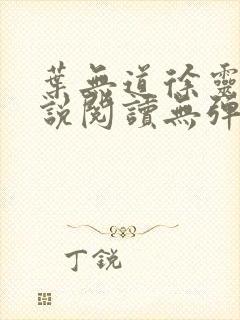 葉無道徐靈
說閱讀無彈
丁銳